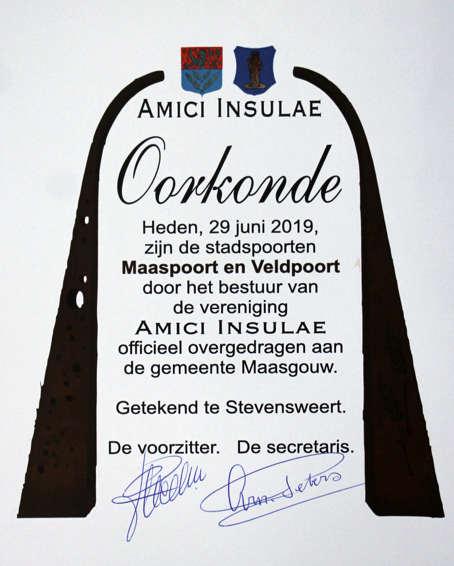 AMICI INSULAE
Oorkonde
Heden, 29 juni 2019,
zijn de stadspoorten
Maaspoort en Veldpoort
door het bestuur van
de vereniging
AMICI INSULAE
officieel overgedragen aan
de gemeente Maasgouw.
Getekend te Stevensweert.
De voorzitter. De secretaris.